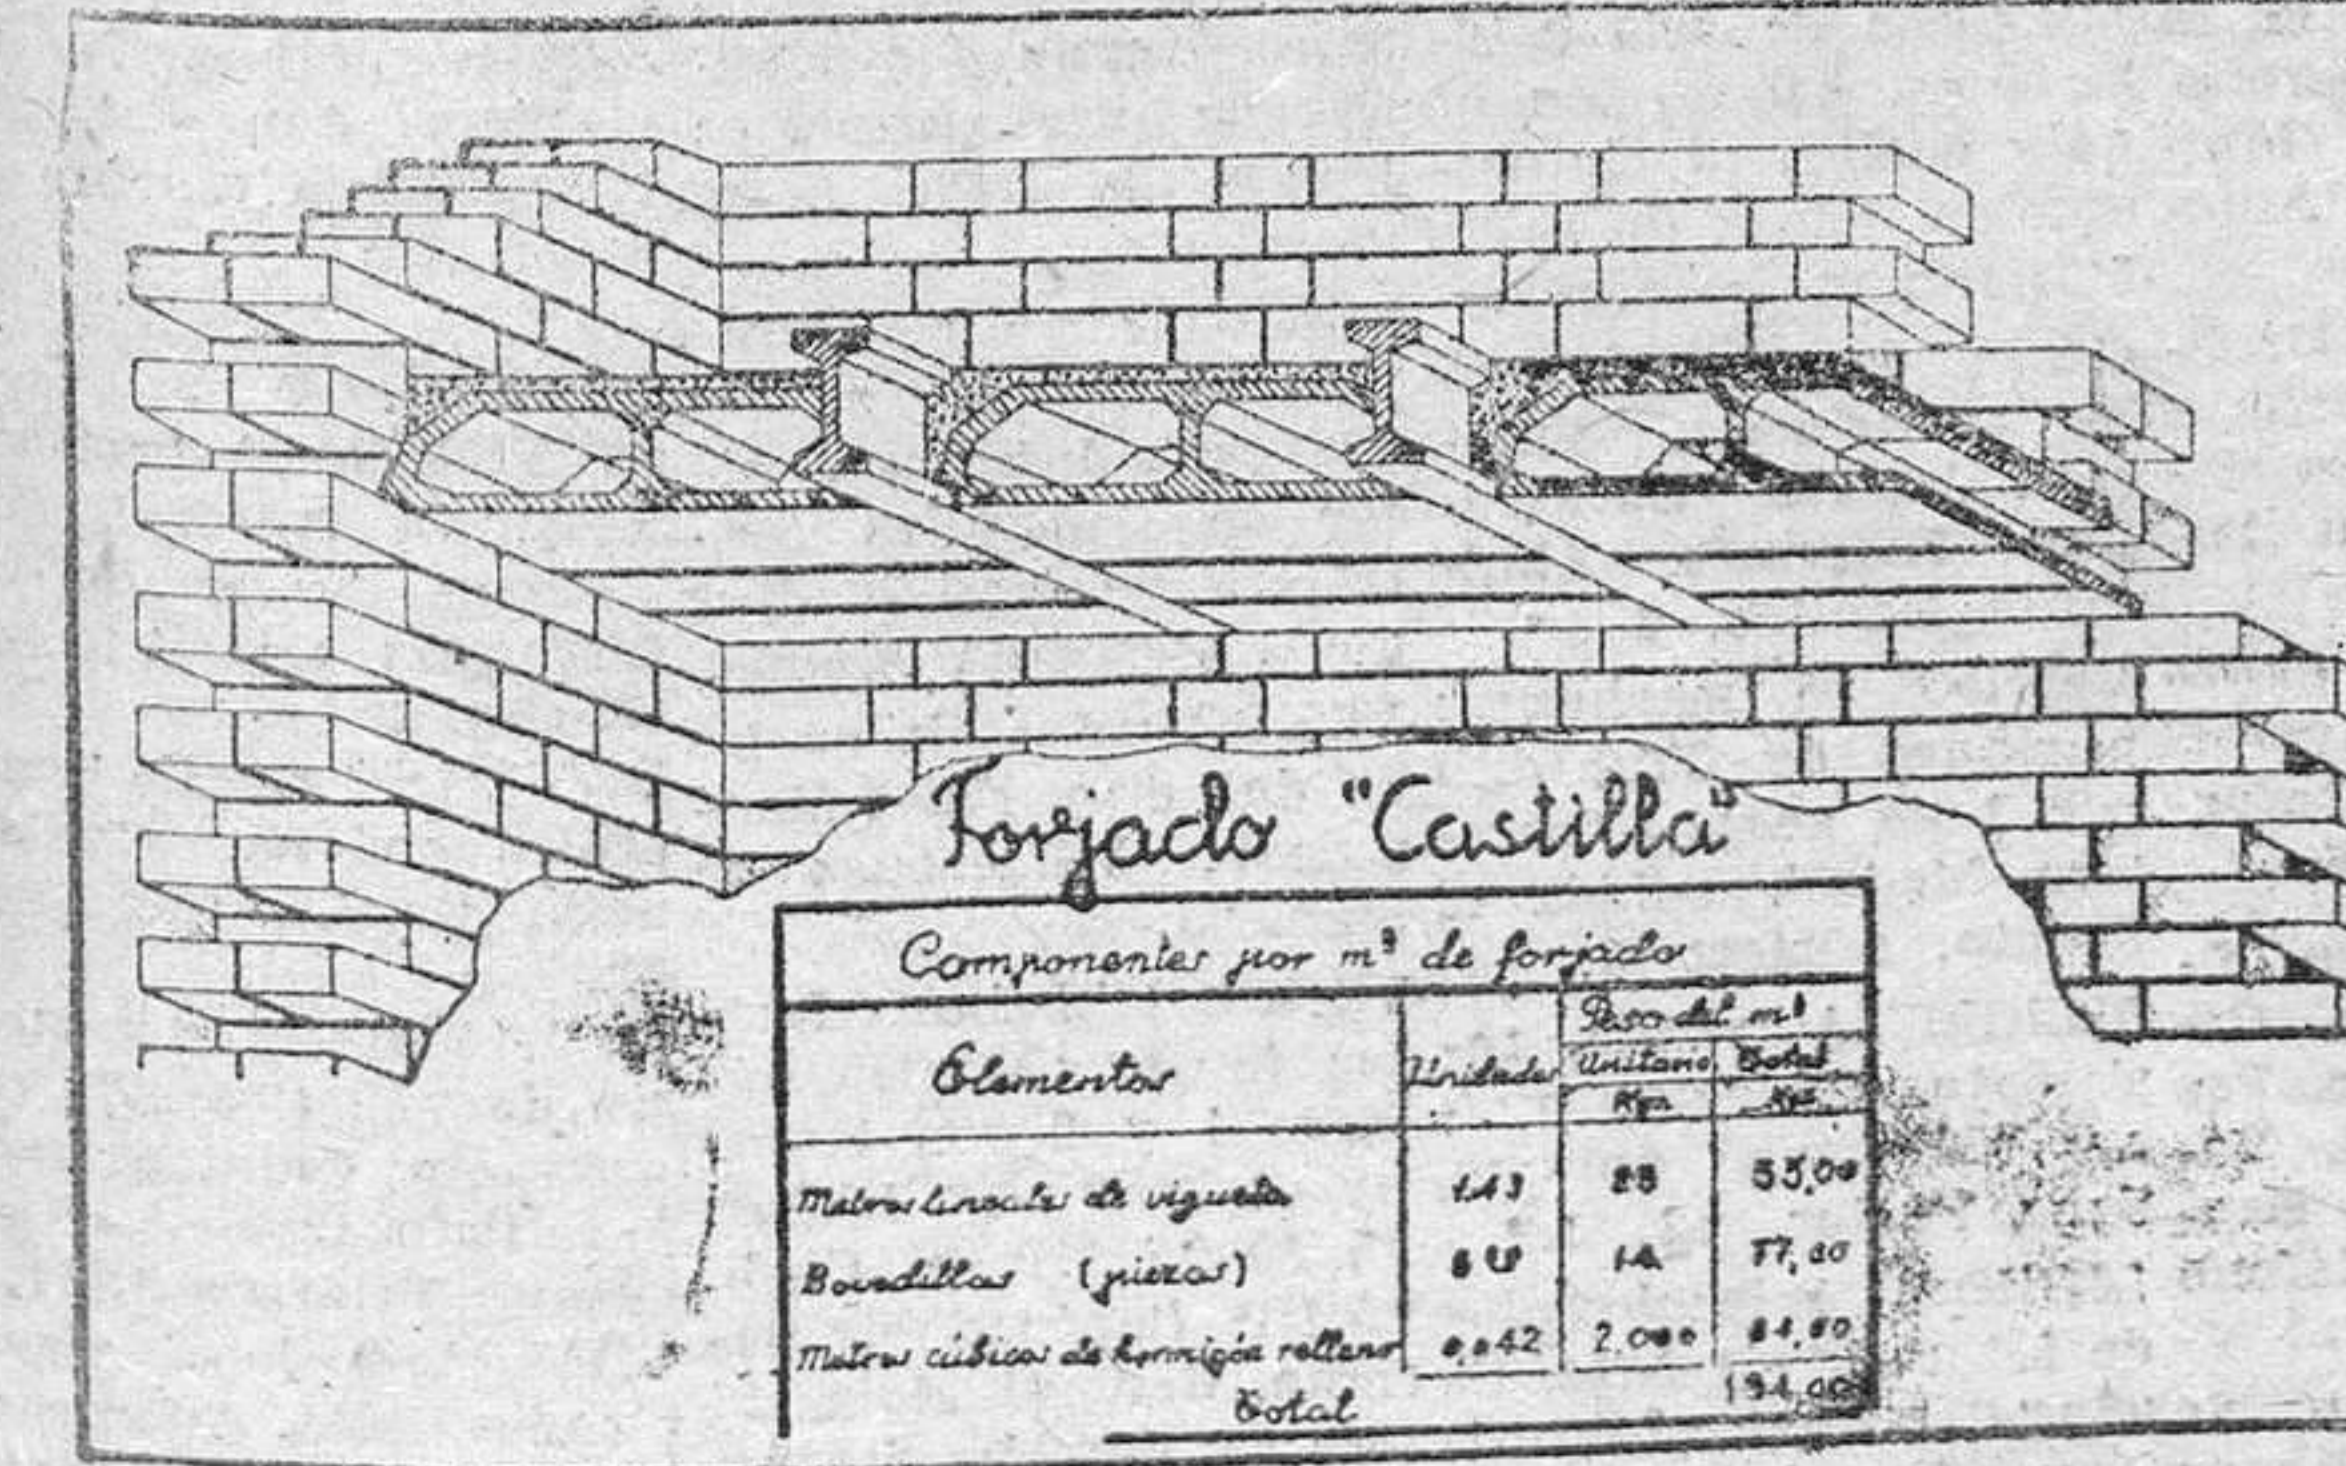 Forjado "Castilla"
Componentes por m² de forjado
Elementos
Unidades
Peso del m²
Unitario
Total
Kgs
Kgs
Metros lineales de vigueta 1.43
Bovedillas (piezas) 14 77,00
Metros cúbicos de hormigón relleno 0,042 2.000
Total 194,00